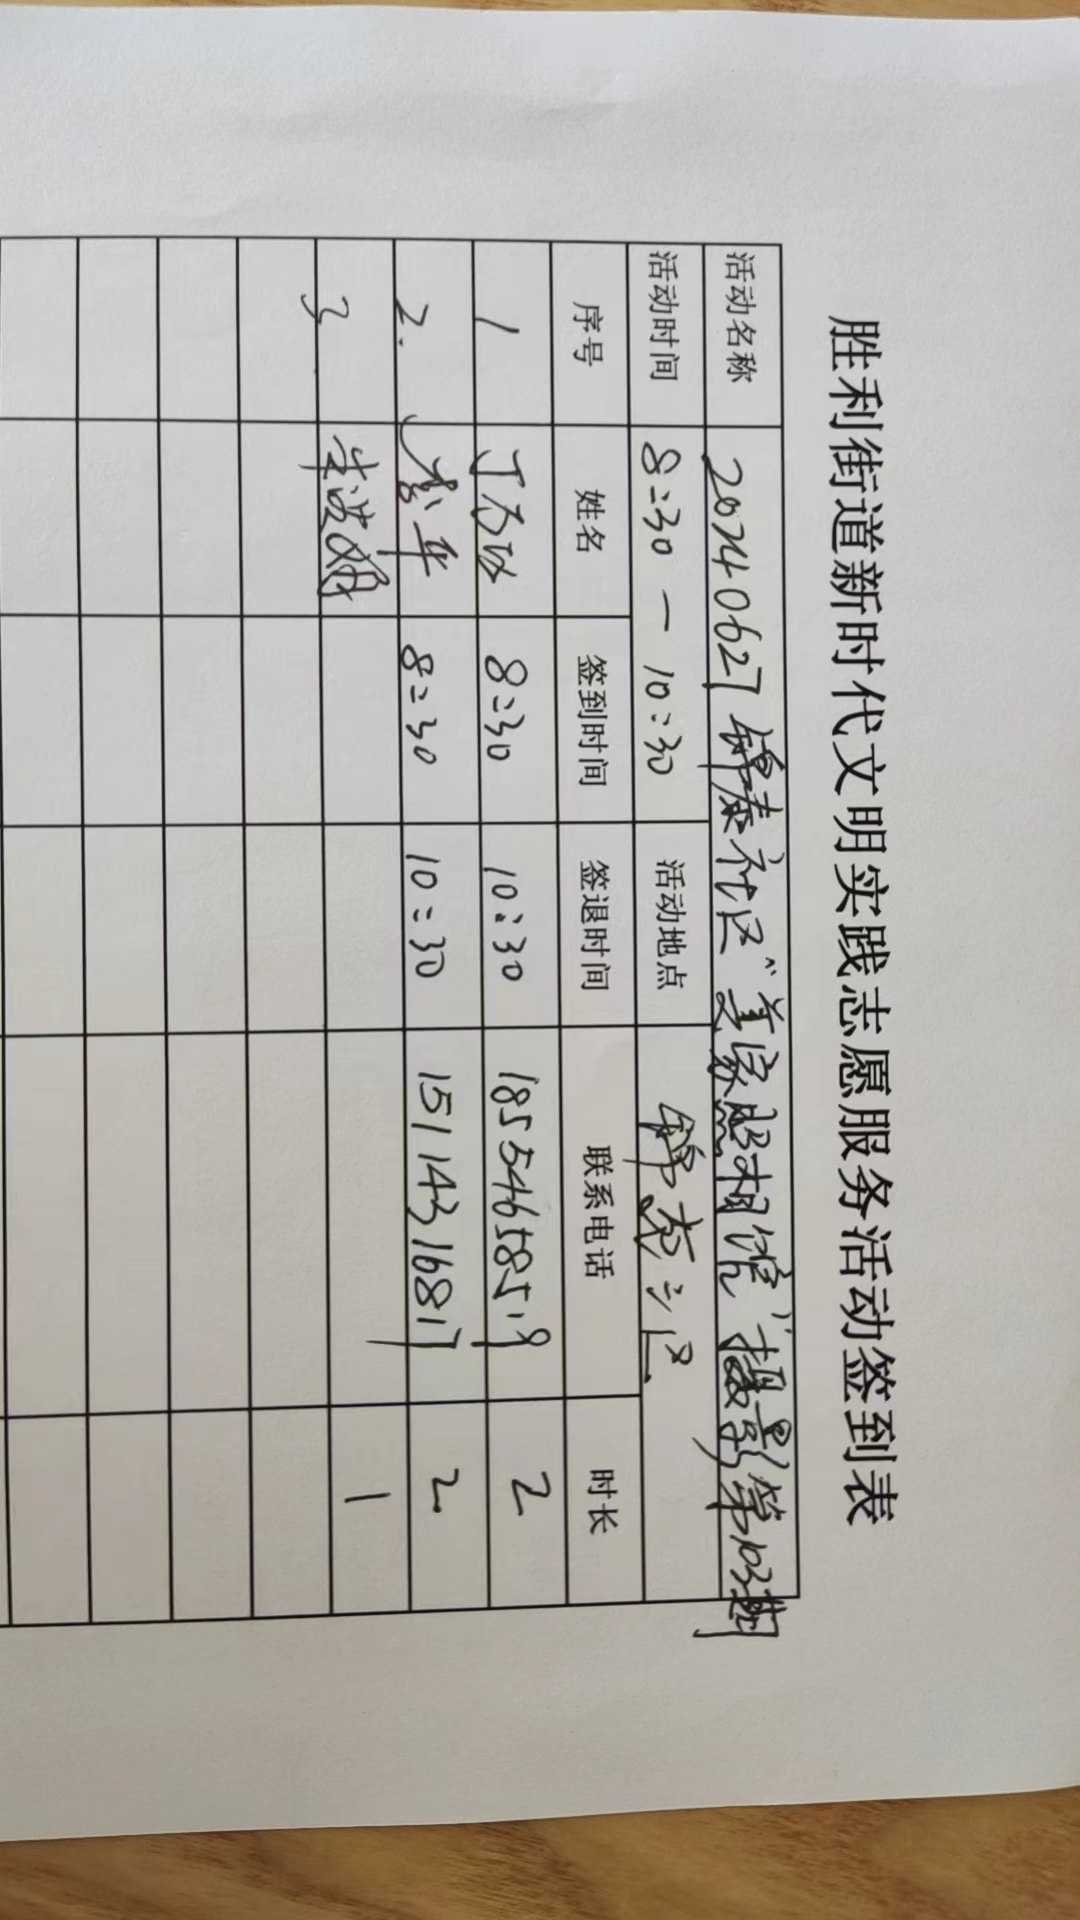 胜利街道新时代文明实践志愿服务活动签到表
活动名称 20240627锦泰社区“美家照相馆”摄影第103期
活动时间 8:30 — 10:30 活动地点 锦泰社区
序号 姓名 签到时间 签退时间 联系电话 时长
1 8:30 10:30 18554658519 2
2. 8:30 10:30 15114316817 2
3 1